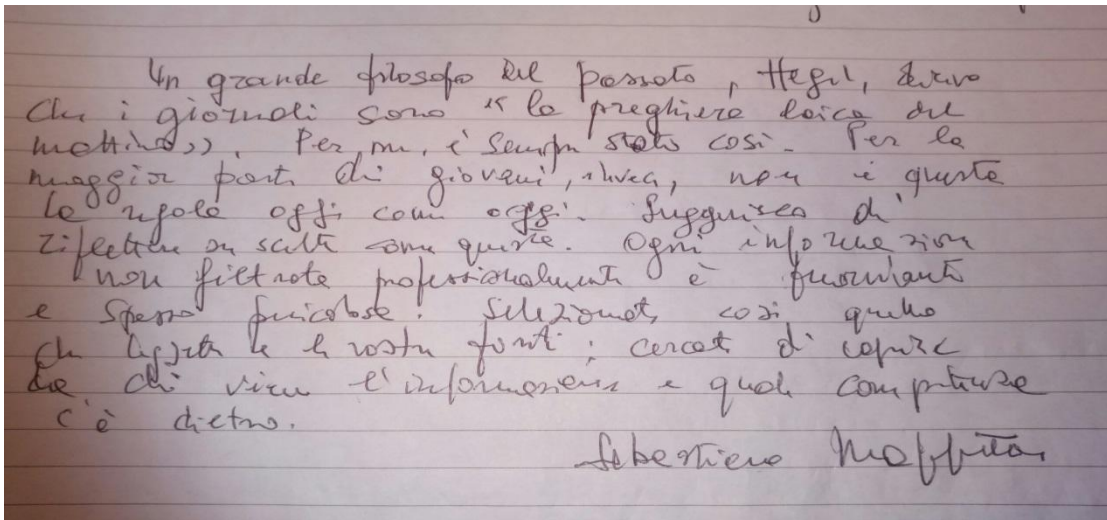 Un grande filosofo del passato, Hegel, diceva
che i giornali sono "la preghiera laica del
mattino". Per me, è sempre stato così. Per la
maggior parte di giovani, invece, non è questa
la regola oggi come oggi. Suggerisco di
riflettere su scelte come queste. Ogni informazione
non filtrata professionalmente è fuorviante
e spesso pericolosa. Selezionate così quello
che leggete e le vostre fonti; cercate di capire
da chi viene l'informazione e quale competenza
c'è dietro.
Sebastiano Maffettone